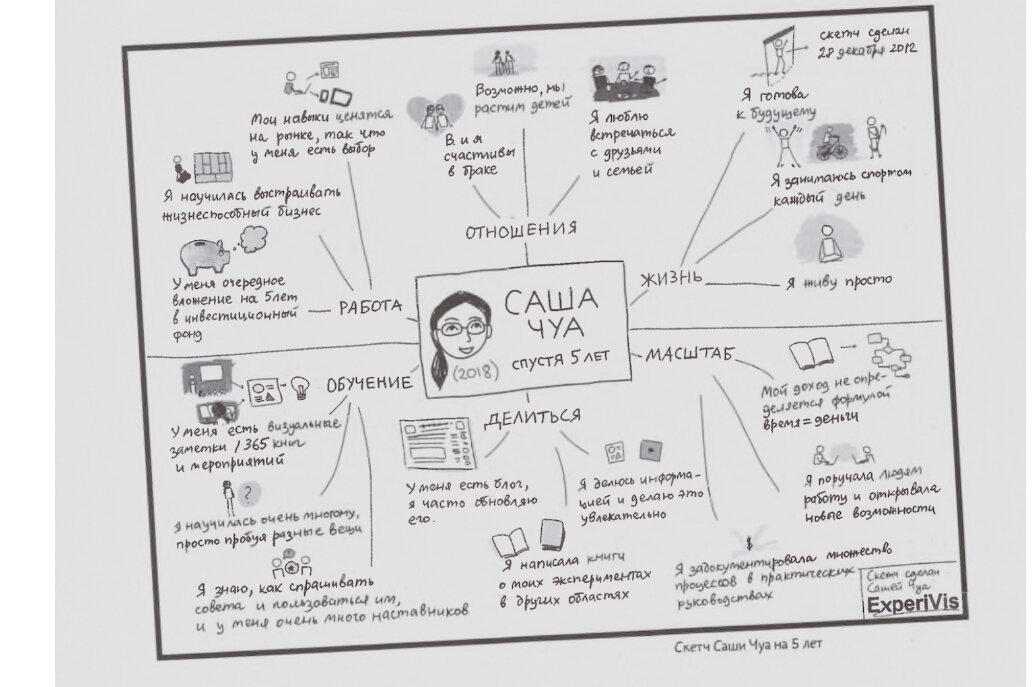 САША
ЧУА
спустя 5 лет
(2018)
скетч сделан
28 декабря 2012
ОТНОШЕНИЯ
В. и я
счастливы
в браке
Возможно, мы
растим детей
Я люблю
встречаться
с друзьями
и семьей
ЖИЗНЬ
Я готова
к будущему
Я занимаюсь спортом
каждый день
Я живу просто
МАСШТАБ
Мой доход не опре-
деляется формулой
время=деньги
Я поручала людям
работу и открывала
новые возможности
$
Я задокументировала множество
процессов в практических
руководствах
ДЕЛИТЬСЯ
Я делюсь информа-
цией и делаю это
увлекательно
Я написала книги
о моих экспериментах
в других областях
У меня есть блог,
я часто обновляю
его.
ОБУЧЕНИЕ
У меня есть визуальные
заметки /365 книг
и мероприятий
?
Я научилась очень многому,
просто пробуя разные вещи
Я знаю, как спрашивать
совета и пользоваться им,
и у меня очень много наставников
РАБОТА
У меня очередное
вложение на 5лет
в инвестиционный
фонд
Я научилась выстраивать
жизнеспособный бизнес
Мои навыки ценятся
на рынке, так что
у меня есть выбор
Скетч сделан
Сашей Чуа
ExperiVis
Скетч Саши Чуа на 5 лет